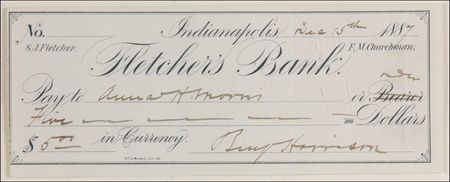 No. Indianapolis, Dec 15th 1887
S.J. Fletcher. F.M. Churchman.
Fletcher's Bank,
Pay to Anna H. Morris or Bearer order
Five Dollars
$5.00 in Currency. Benj Harrison